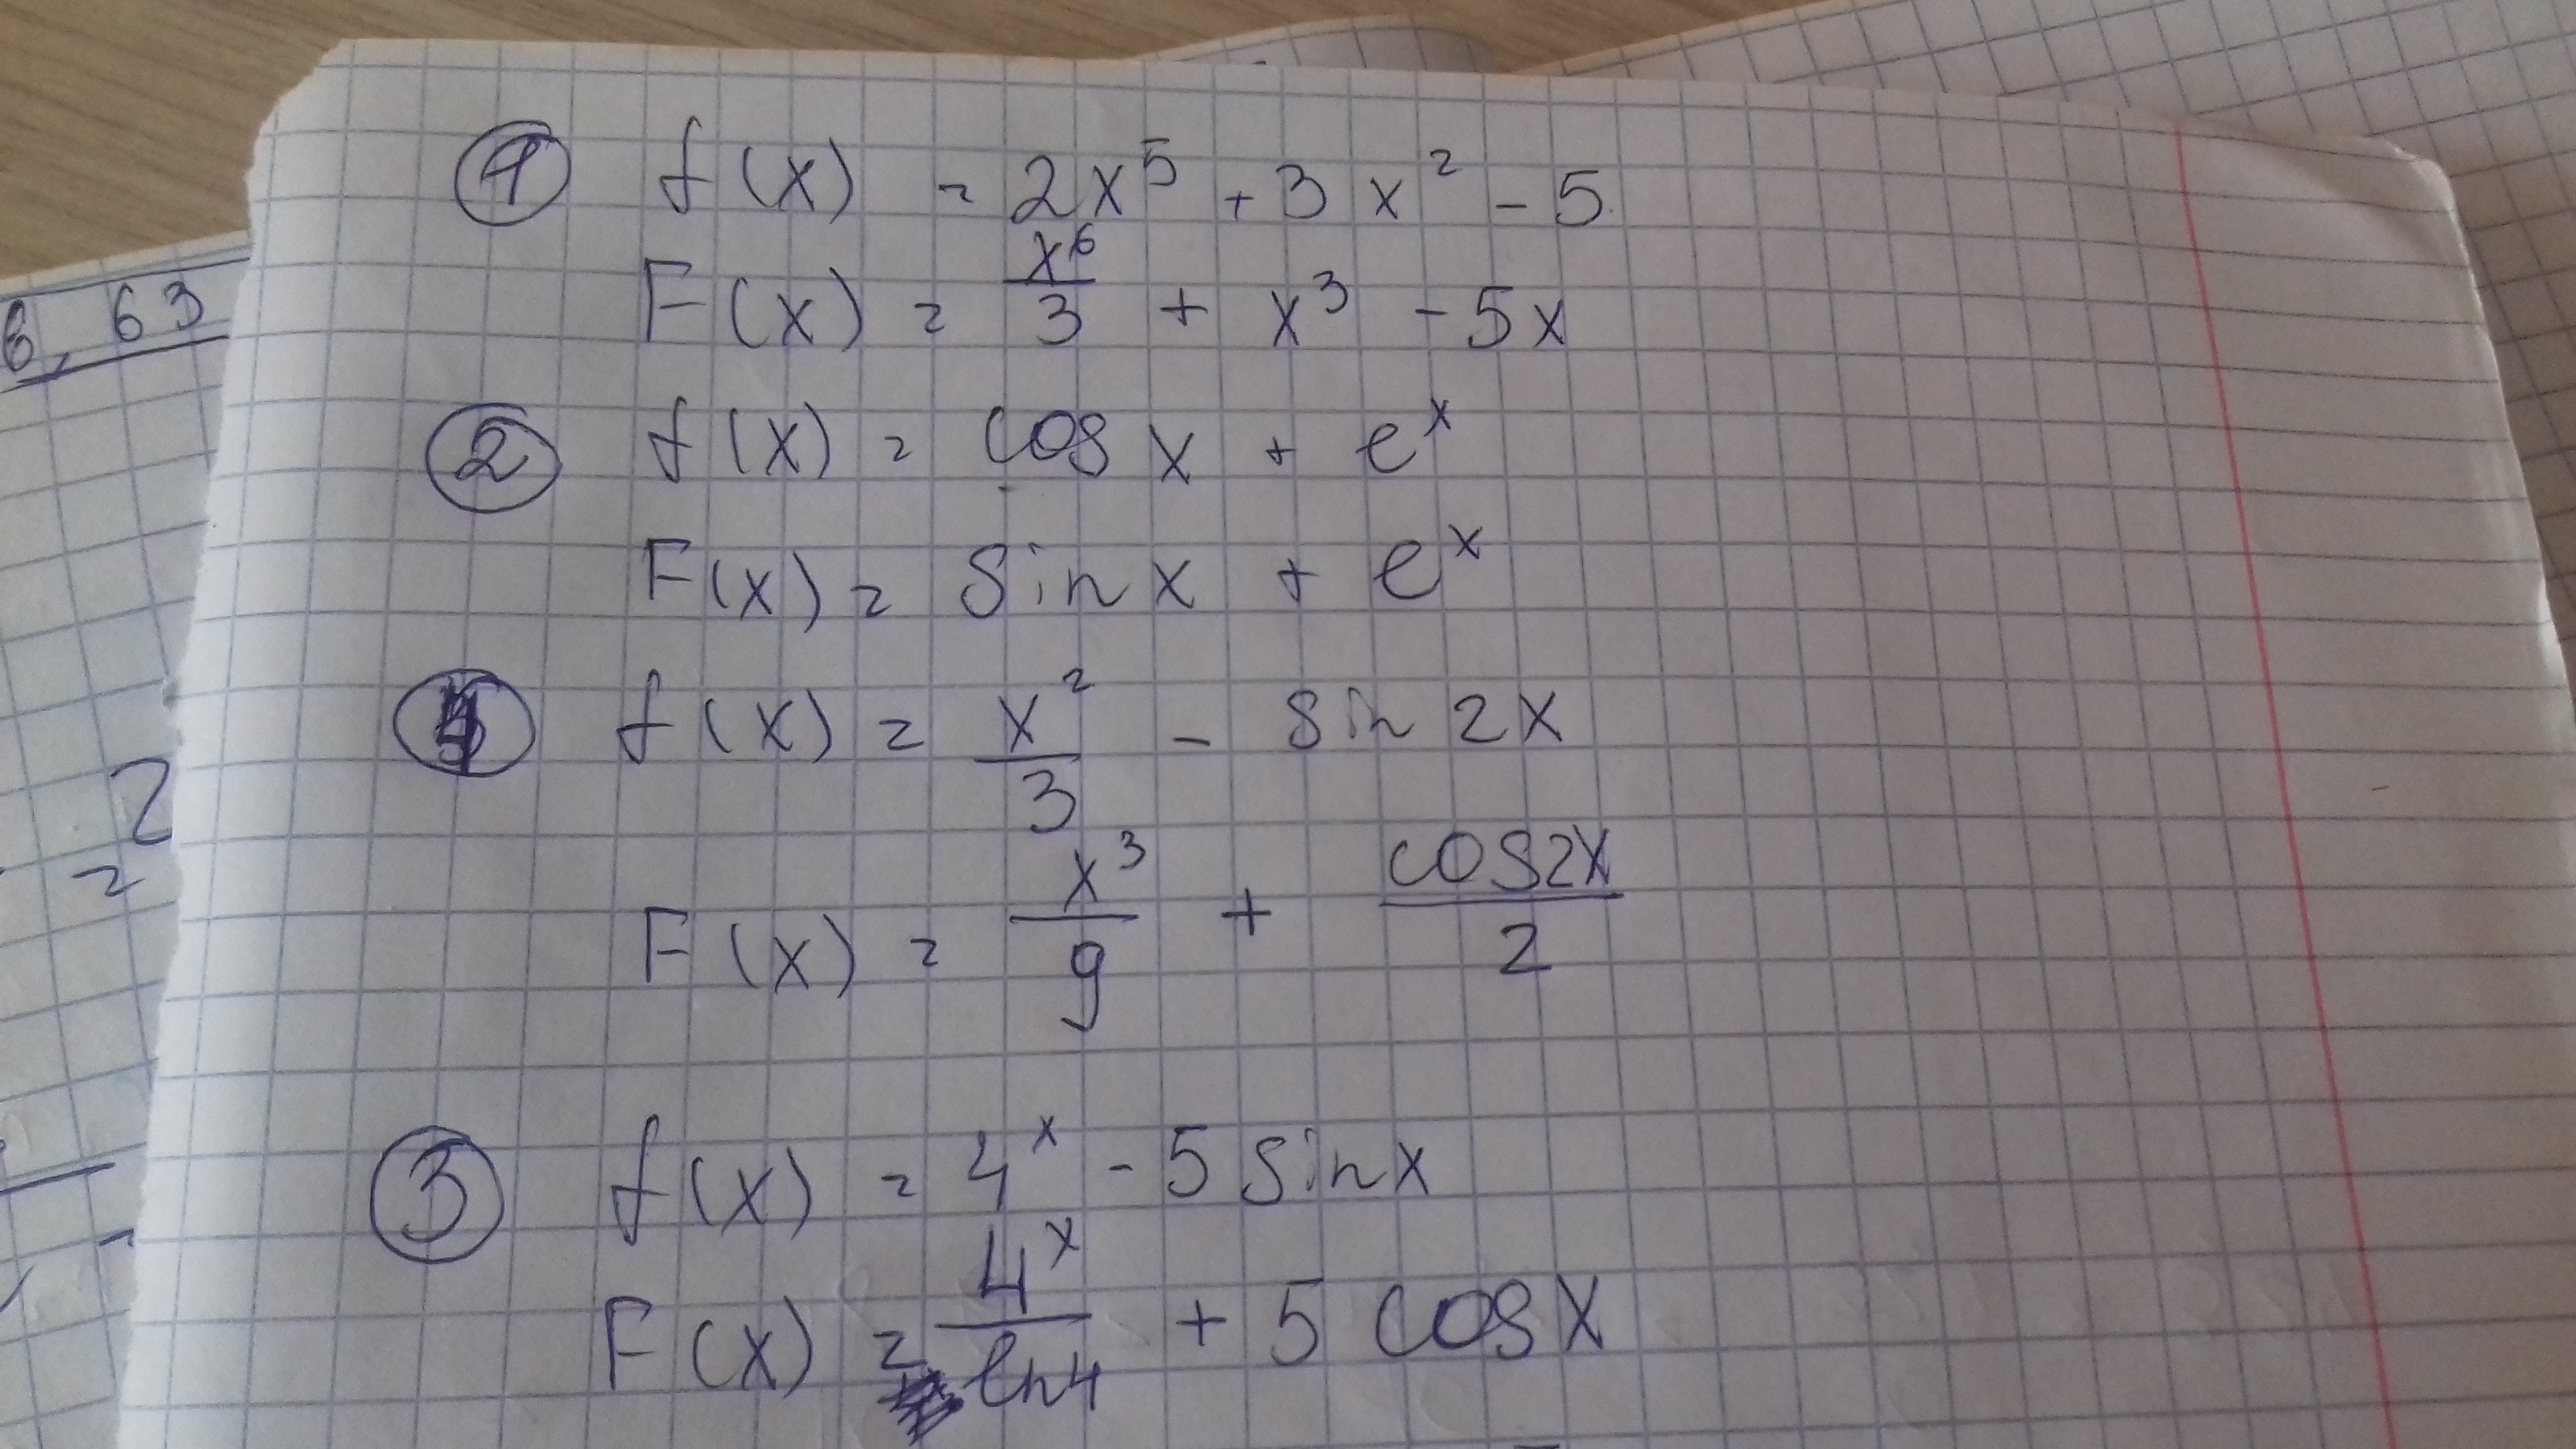 ① f(x) = 2x⁵ + 3x² - 5
F(x) = x⁶/3 + x³ - 5x
② f(x) = cos x + eˣ
F(x) = sin x + eˣ
④ f(x) = x²/3 - sin 2x
F(x) = x³/9 + cos2x/2
③ f(x) = 4ˣ - 5 sinx
F(x) = 4ˣ/ln4 + 5 cosx
8, 63
2
=